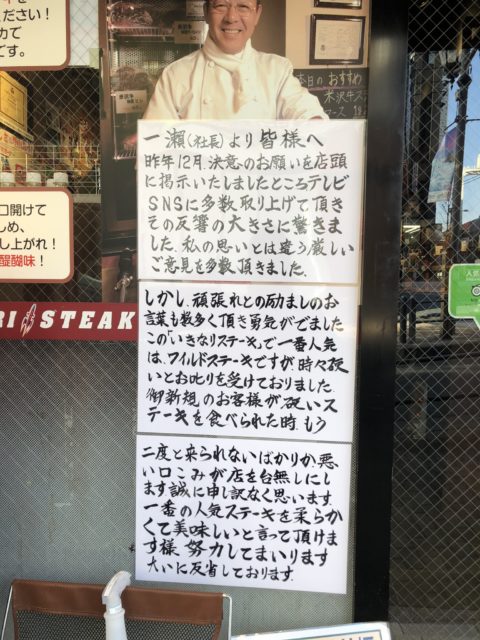 ください！
カで
です。
本日のおすすめ
米沢牛ス
一瀬(社長)より皆様へ
昨年12月、決意のお願いを店頭
に掲示いたしましたところテレビ
SNSに多数取り上げて頂き
その反響の大きさに驚きま
した。私の思いとは違う厳しい
ご意見を多数頂きました。
しかし、頑張れとの励ましのお
言葉も数多く頂き勇気がでました
この「いきなりステーキ」で一番人気
は、ワイルドステーキですが、時々硬
いとお叱りを受けておりました
御新規のお客様が硬いス
テーキを食べられた時、もう
二度と来られないばかりか、悪
い口こみが店を台無しにし
ます誠に申し訳なく思います。
一番の人気ステーキを柔らか
くて美味しいと言って頂けま
す様、努力してまいります
大いに反省しております。
口開けて
しめ、
し上がれ！
醍醐味！
RI STEAK
人気